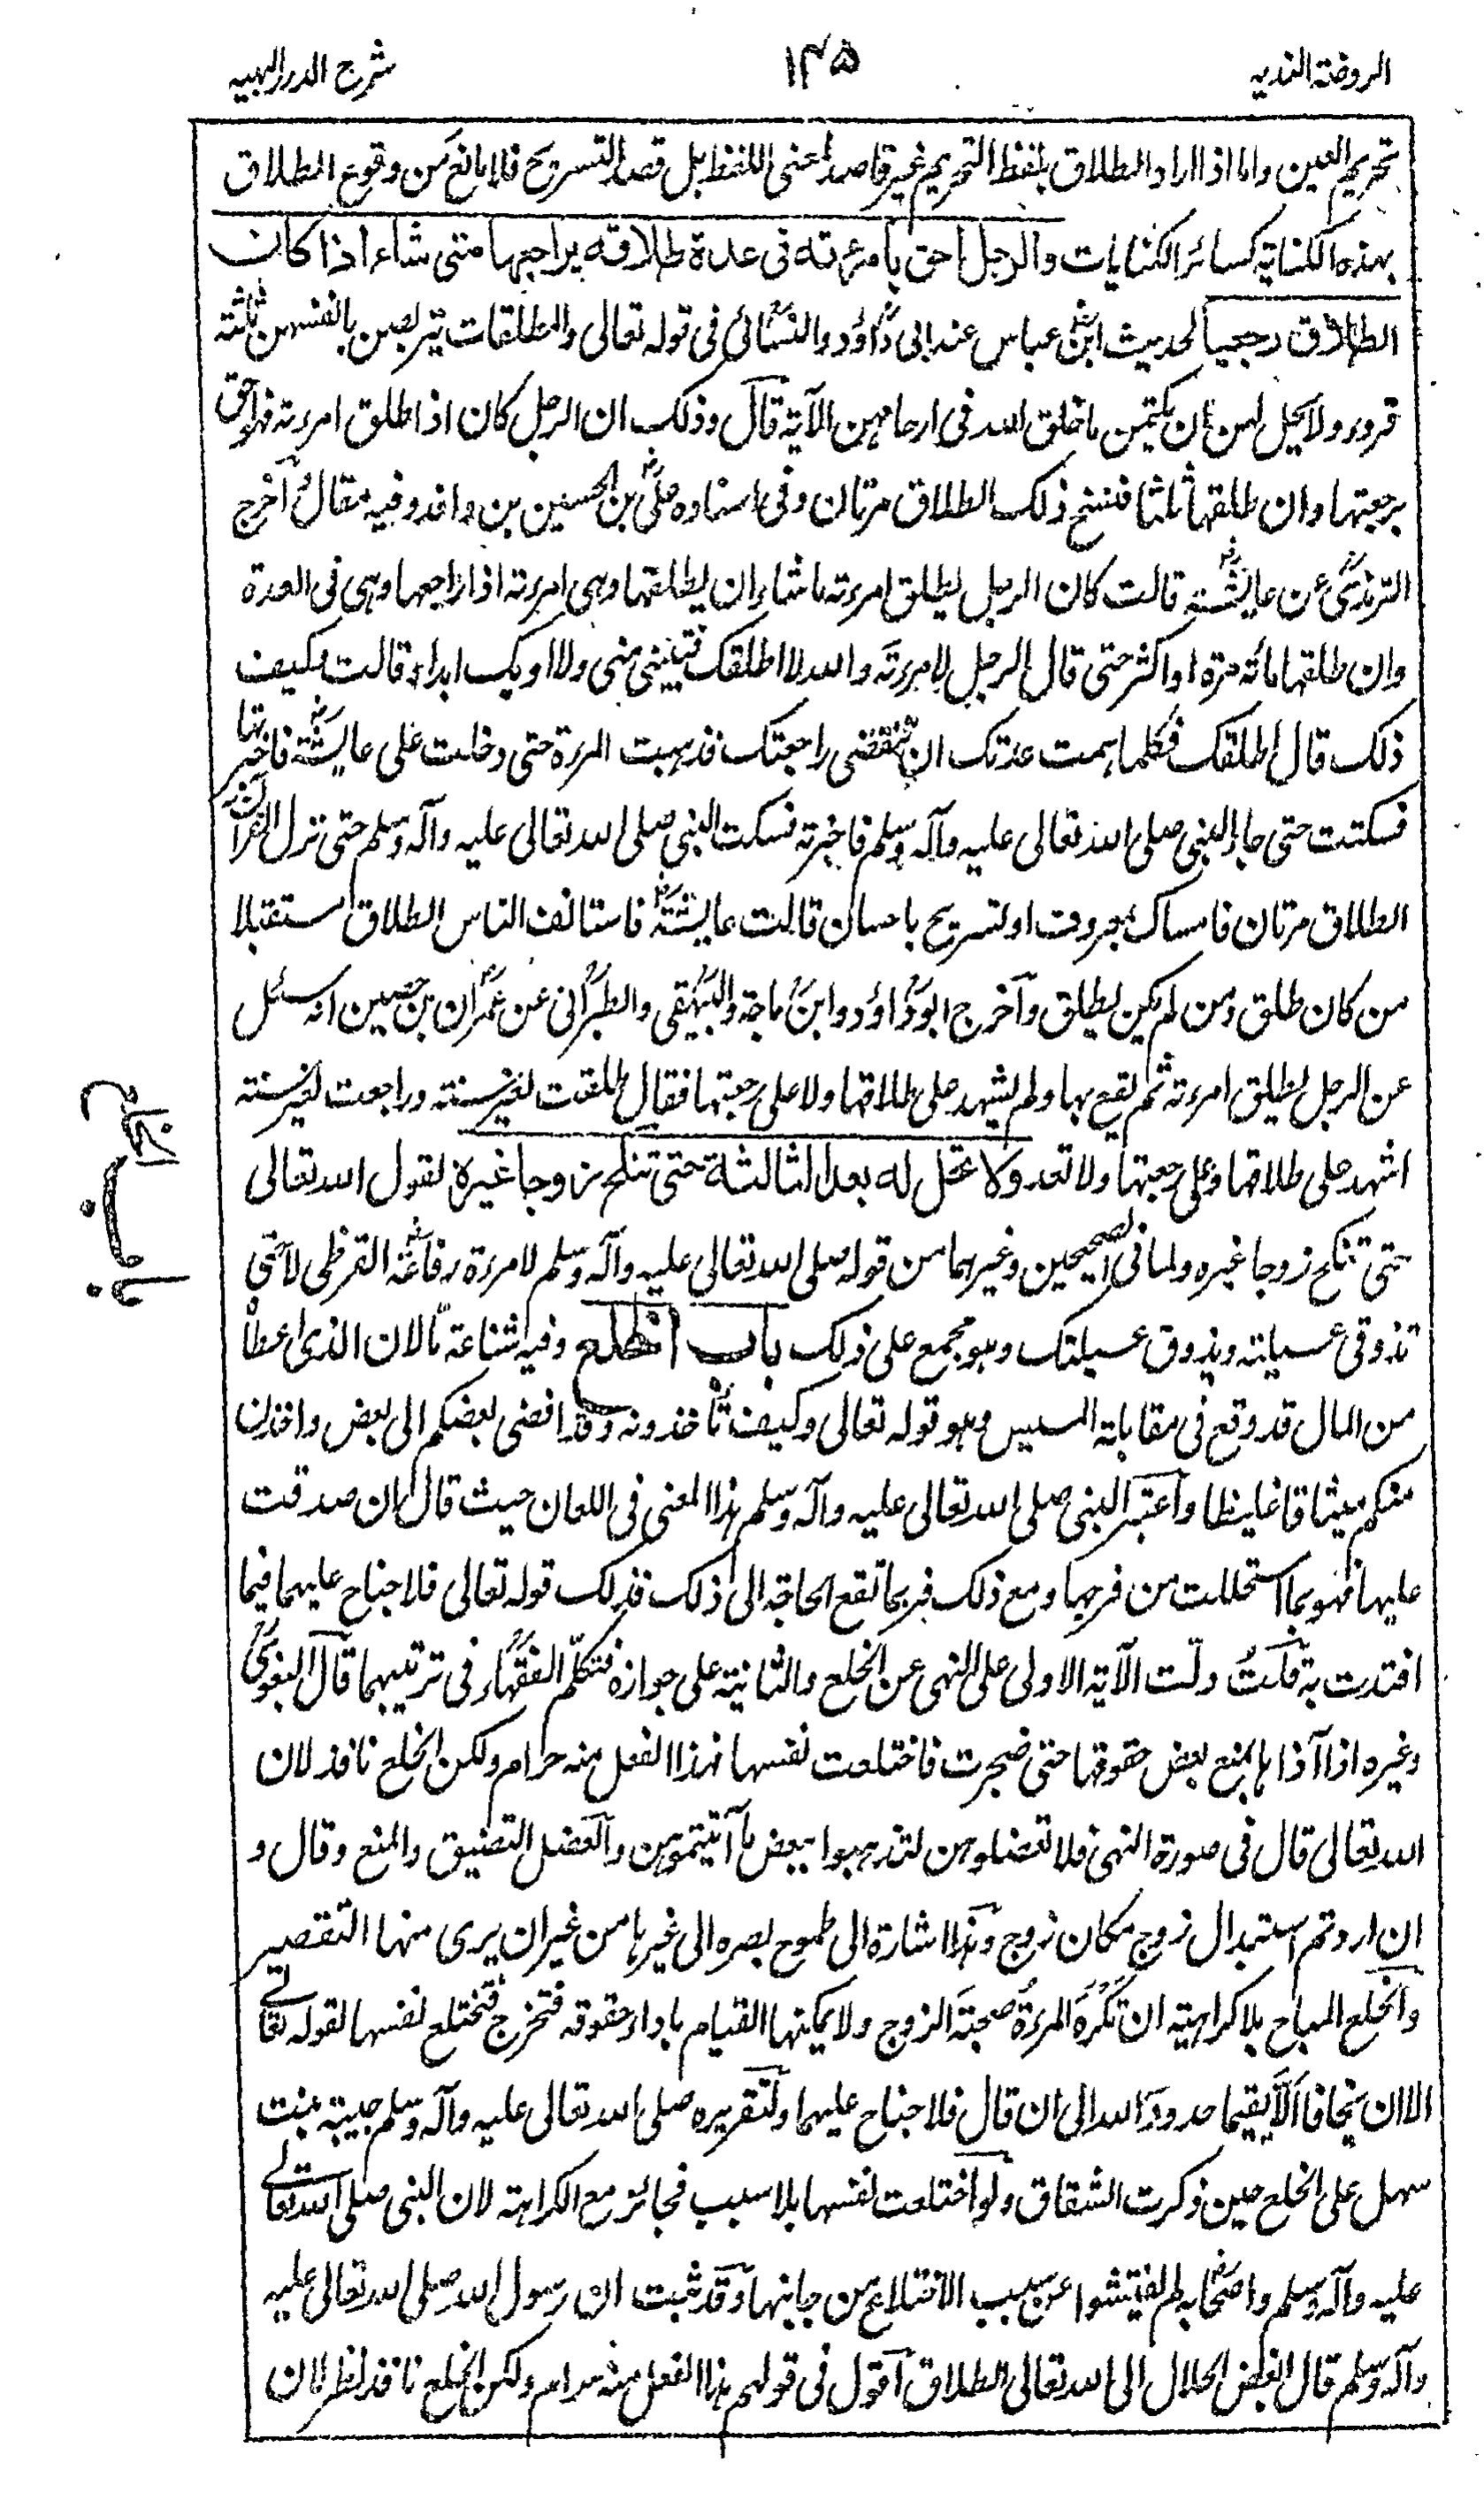 الروضة الندیه
۱۴۵
شرح الدرر البهیه
تحريم العين واما اذا اراد الطلاق بلفظ التحريم غير قاصد لمعنى اللفظ بل قصد التسريح فلا مانع من وقوع الطلاق
بهذه الكناية كسائر الكنايات والرجل احق بامرءته فى عدة طلاقه يراجعها متى شاء اذا كان
الطلاق رجعيا لحديث ابن عباس عند ابى داؤد والنسائى فى قوله تعالى والمطلقات يتربصن بانفسهن ثلثة
قروء ولا يحل لهن ان يكتمن ما خلق الله فى ارحامهن الآية قال وذلك ان الرجل كان اذا طلق امرءته فهو احق
برجعتها وان طلقها ثلثا فنسخ ذلك الطلاق مرتان وفى اسناده على بن الحسين بن واقد وفيه مقال اخرج
الترمذى عن عايشة قالت كان الرجل يطلق امرءته ماشاء ان يطلقها وهى امرءته اذا راجعها وهى فى العدة
وان طلقها مائة مرة او اكثر حتى قال الرجل لامرءته والله لا اطلقك فتبينى منى ولا اويك ابداء قالت وكيف
ذلك قال اطلقك فكلما همت عدتك ان تنقضى راجعتك فذهبت المرءة حتى دخلت على عايشة فاخبرتها
فسكتت حتى جاء النبى صلى الله تعالى عليه وآله وسلم فاخبرته فسكت النبى صلى الله تعالى عليه وآله وسلم حتى نزل القرآن
الطلاق مرتان فامساك بمعروف او تسريح باحسان قالت عايشة فاستانف الناس الطلاق مستقبلا
من كان طلق ومن لم يكن يطلق واخرج ابو داؤد وابن ماجة والبيهقى والطبرانى عن عمران بن حصين انه سئل
عن الرجل يطلق امرءته ثم يقع بها ولم يشهد على طلاقها ولا على رجعتها فقال طلقت لغير سنته وراجعت لغير سنته
اشهد على طلاقها وعلى رجعتها ولا تعد ولا تحل له بعد الثالثة حتى تنكح زوجا غيره لقول الله تعالى
حتى تنكح زوجا غيره ولما فى الصحيحين وغيرهما من قوله صلى الله تعالى عليه وآله وسلم لامرءة رفاعة القرظى لا حتى
تذوقى عسيلته ويذوق عسيلتك وهو مجمع على ذلك باب الخلع وفيه شناعة ما لان الذى اعطاه
من المال قد وقع فى مقابلة المسيس وهو قوله تعالى وكيف تأخذونه وقد افضى بعضكم الى بعض واخذن
منكم ميثاقا غليظا واعتبر النبى صلى الله تعالى عليه وآله وسلم هذا المعنى فى اللعان حيث قال ان صدقت
عليها فهو بما استحللت من فرجها ومع ذلك فربما تقع الحاجة الى ذلك فذلك قوله تعالى فلا جناح عليهما فيما
افتدت به قلت دلّت الآية الاولى على النهى عن الخلع والثانية على جوازه فتكلّم الفقهاء فى ترتيبهما قال البغوى
وغيره اذا آذاها بمنع بعض حقوقها حتى ضجرت فاختلعت نفسها فهذا الفعل منه حرام ولكن الخلع نافذ لان
الله تعالى قال فى صورة النهى فلا تعضلوهن لتذهبوا ببعض ما آتيتموهن والعضل التضييق والمنع وقال و
ان اردتم استبدال زوج مكان زوج وهذا اشارة الى طموح بصره الى غيرها من غير ان يرى منها التقصير
والخلع المباح بلا كراهية ان تكره المرءة صحبة الزوج ولا يمكنها القيام باداء حقوقه فتخرج فتختلع نفسها لقوله تعالے
الا ان يخافا ألّا يقيما حدود الله الى ان قال فلا جناح عليهما ولتقريره صلى الله تعالى عليه وآله وسلم حبيبة بنت
سهل على الخلع حين ذكرت الشقاق ولو اختلعت نفسها بلا سبب فجائز مع الكراهة لان النبى صلى الله تعالے
عليه وآله وسلم واصحابه لم يفتشوا عن سبب الاختلاع من جانبها وقد ثبت ان رسول الله صلى الله تعالى عليه
وآله وسلم قال ابغض الحلال الى الله تعالى الطلاق اقول فى قولهم هذا الفعل منه حرام ولكن الخلع نافذ نظر لان
باب الخلع